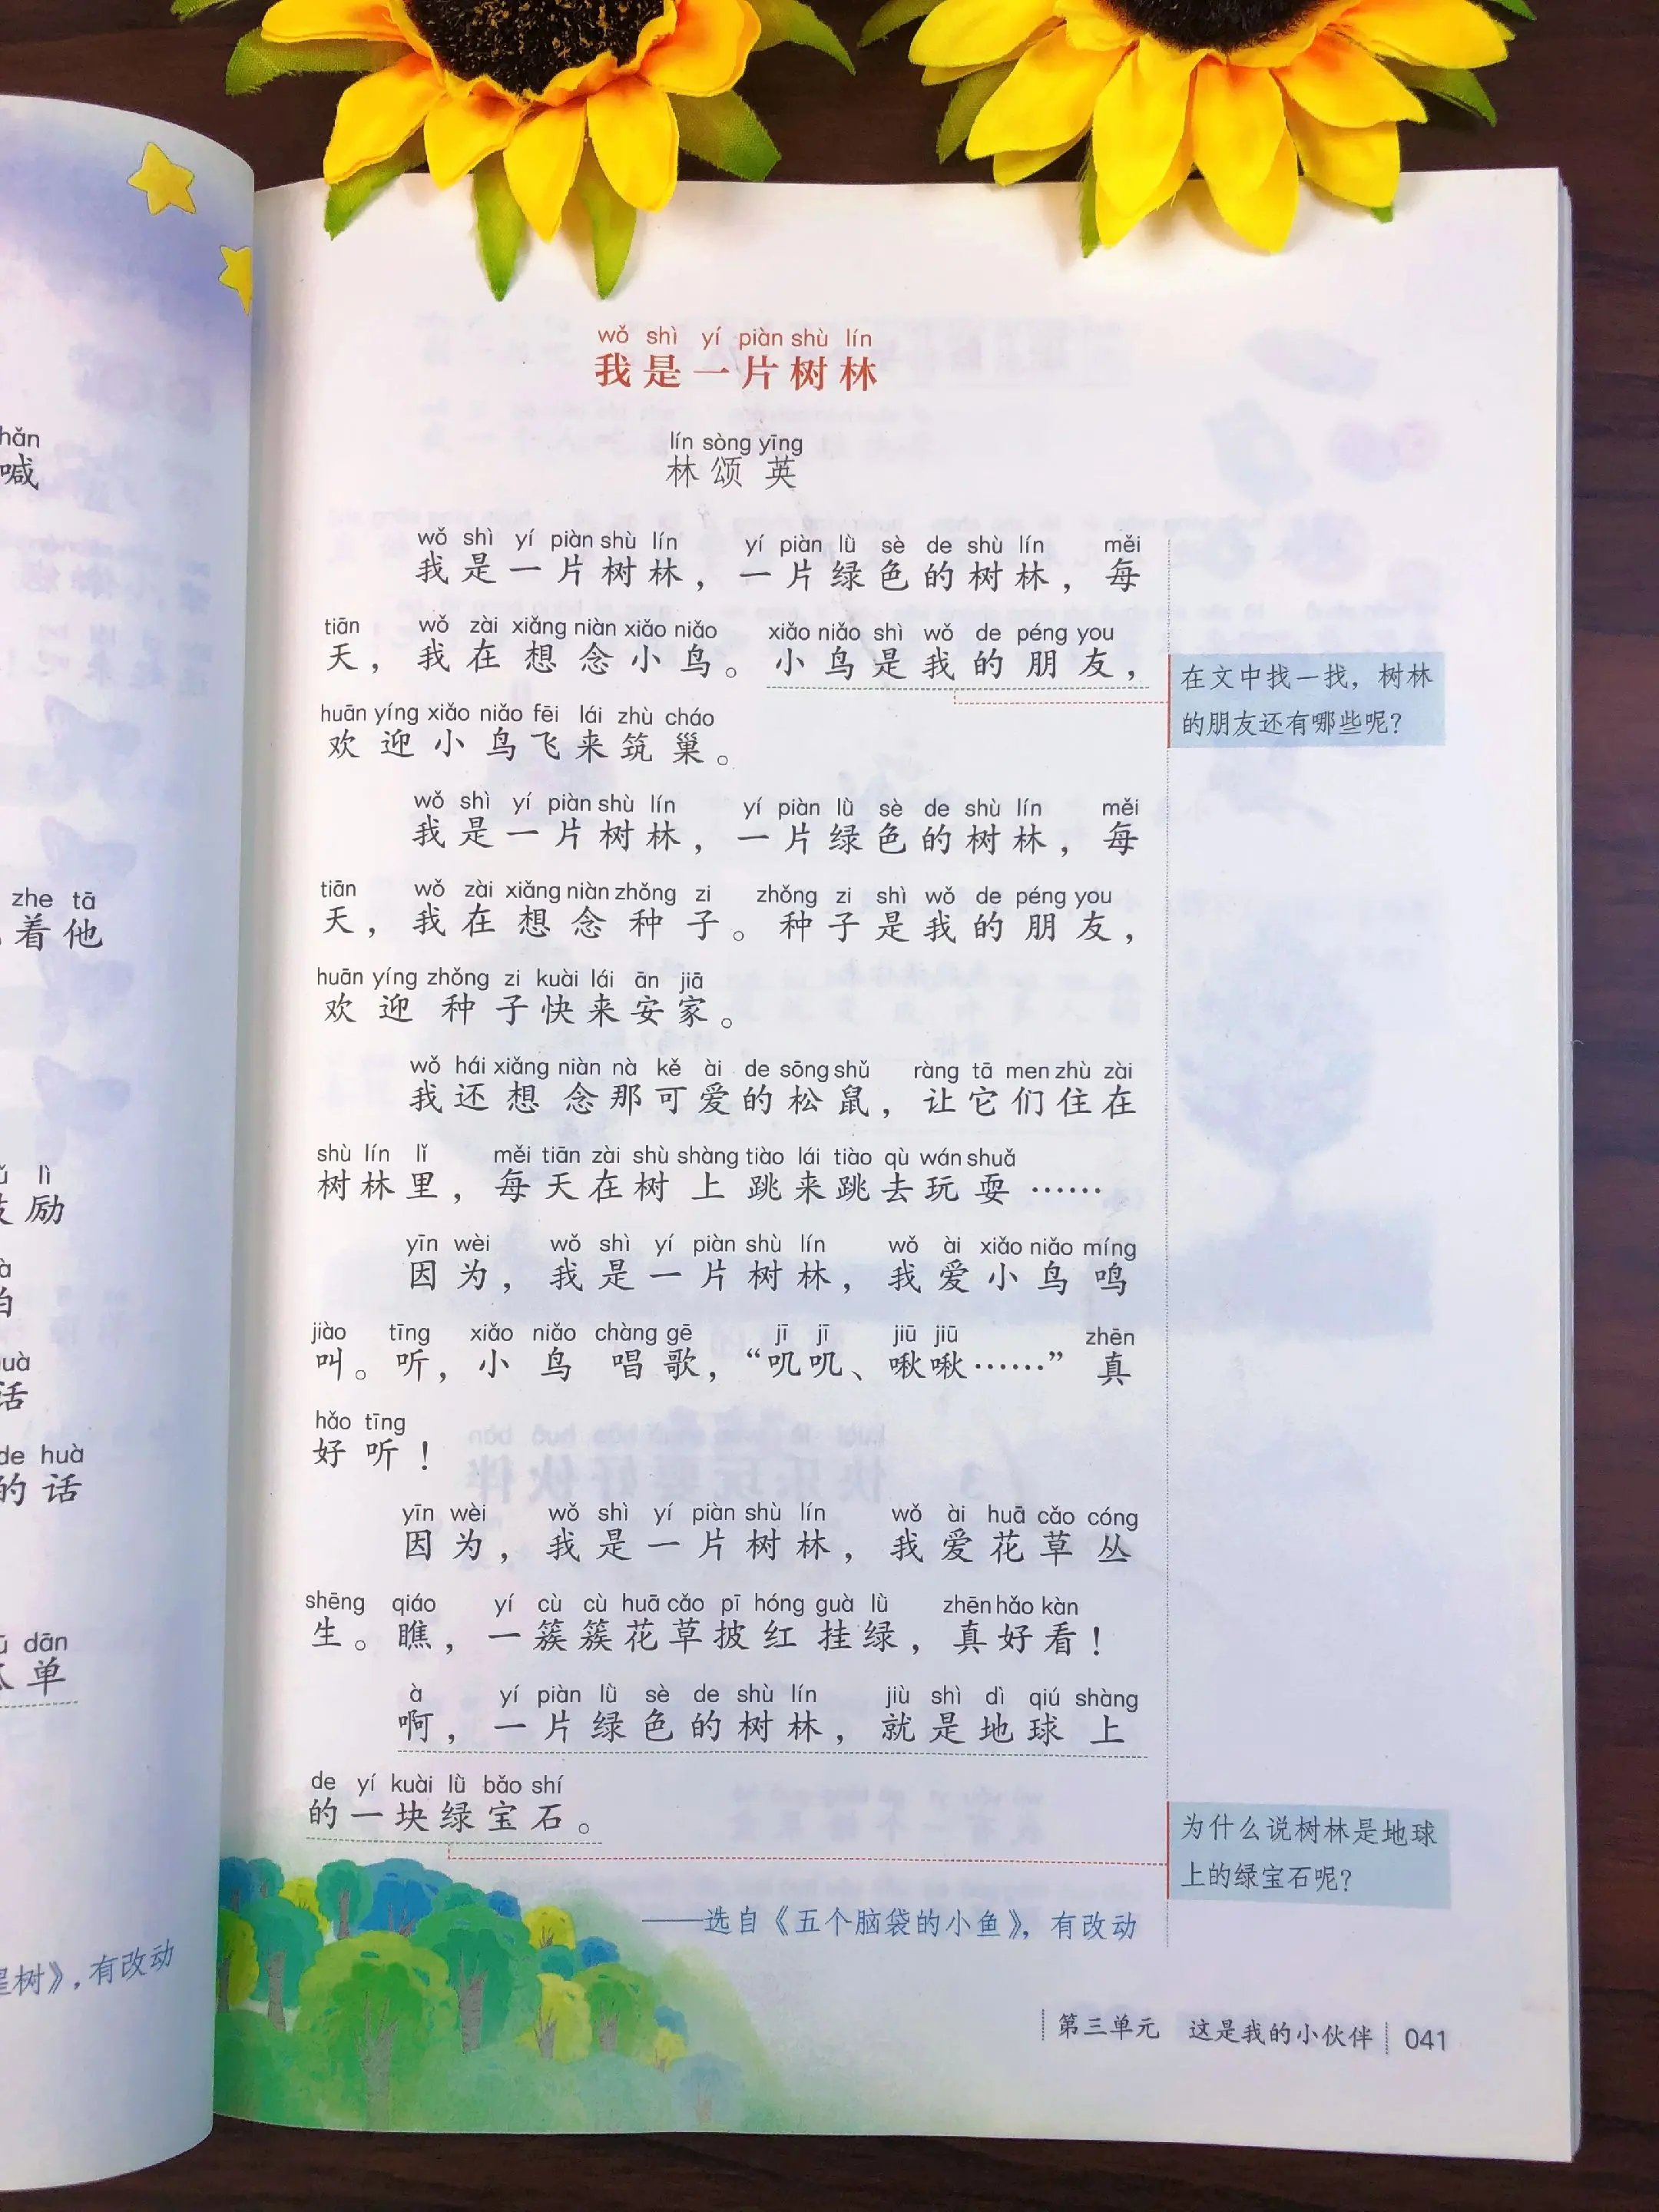 hǎn
喊
zhe tā
着他
lì
励
huà
话
de huà
的话
dān
单
树》,有改动
wǒ shì yí piàn shù lín
我是一片树林
lín sòng yīng
林颂英
wǒ shì yí piàn shù lín yí piàn lǜ sè de shù lín měi
我是一片树林，一片绿色的树林，每
tiān wǒ zài xiǎng niàn xiǎo niǎo xiǎo niǎo shì wǒ de péng you
天，我在想念小鸟。小鸟是我的朋友，
huān yíng xiǎo niǎo fēi lái zhù cháo
欢迎小鸟飞来筑巢。
wǒ shì yí piàn shù lín yí piàn lǜ sè de shù lín měi
我是一片树林，一片绿色的树林，每
tiān wǒ zài xiǎng niàn zhǒng zi zhǒng zi shì wǒ de péng you
天，我在想念种子。种子是我的朋友，
huān yíng zhǒng zi kuài lái ān jiā
欢迎种子快来安家。
wǒ hái xiǎng niàn nà kě ài de sōng shǔ ràng tā men zhù zài
我还想念那可爱的松鼠，让它们住在
shù lín lǐ měi tiān zài shù shàng tiào lái tiào qù wán shuǎ
树林里，每天在树上跳来跳去玩耍……
yīn wèi wǒ shì yí piàn shù lín wǒ ài xiǎo niǎo míng
因为，我是一片树林，我爱小鸟鸣
jiào tīng xiǎo niǎo chàng gē jī jī jiū jiū zhēn
叫。听，小鸟唱歌，“叽叽、啾啾……”真
hǎo tīng
好听！
yīn wèi wǒ shì yí piàn shù lín wǒ ài huā cǎo cóng
因为，我是一片树林，我爱花草丛
shēng qiáo yí cù cù huā cǎo pī hóng guà lǜ zhēn hǎo kàn
生。瞧，一簇簇花草披红挂绿，真好看！
à yí piàn lǜ sè de shù lín jiù shì dì qiú shàng
啊，一片绿色的树林，就是地球上
de yí kuài lǜ bǎo shí
的一块绿宝石。
——选自《五个脑袋的小鱼》，有改动
在文中找一找，树林
的朋友还有哪些呢？
为什么说树林是地球
上的绿宝石呢？
第三单元 这是我的小伙伴 041